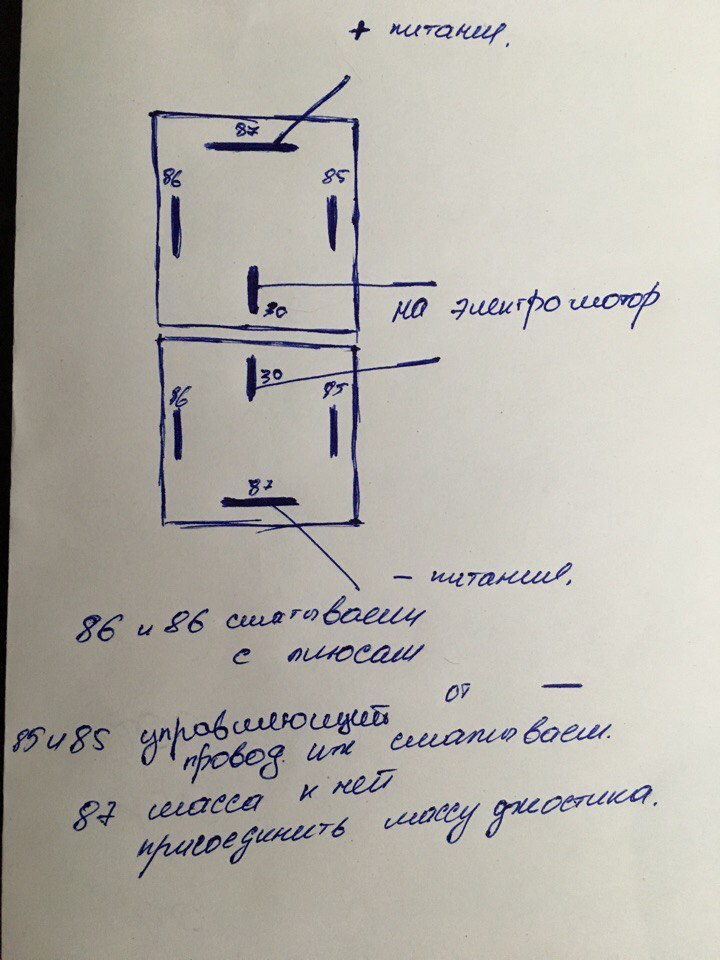 + питание.
87
86 85
30
на электромотор
30
86 85
87
- питание.
86 и 86 сматываем
с плюсом
85 и 85 управляющий от —
провод их сматываем.
87 масса к ней
присоединить массу джостика.